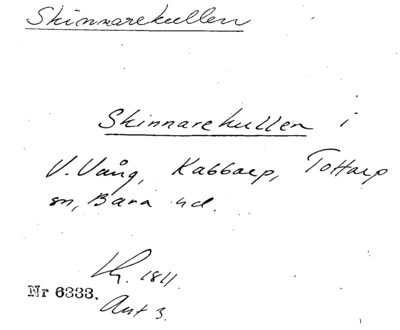 Skinnarekullen
Skinnarekullen i
V. Vång, Kabbarp, Tottarp
sn, Bara hd.
Lg. 1811.
Nr 6333.
Akt 3.